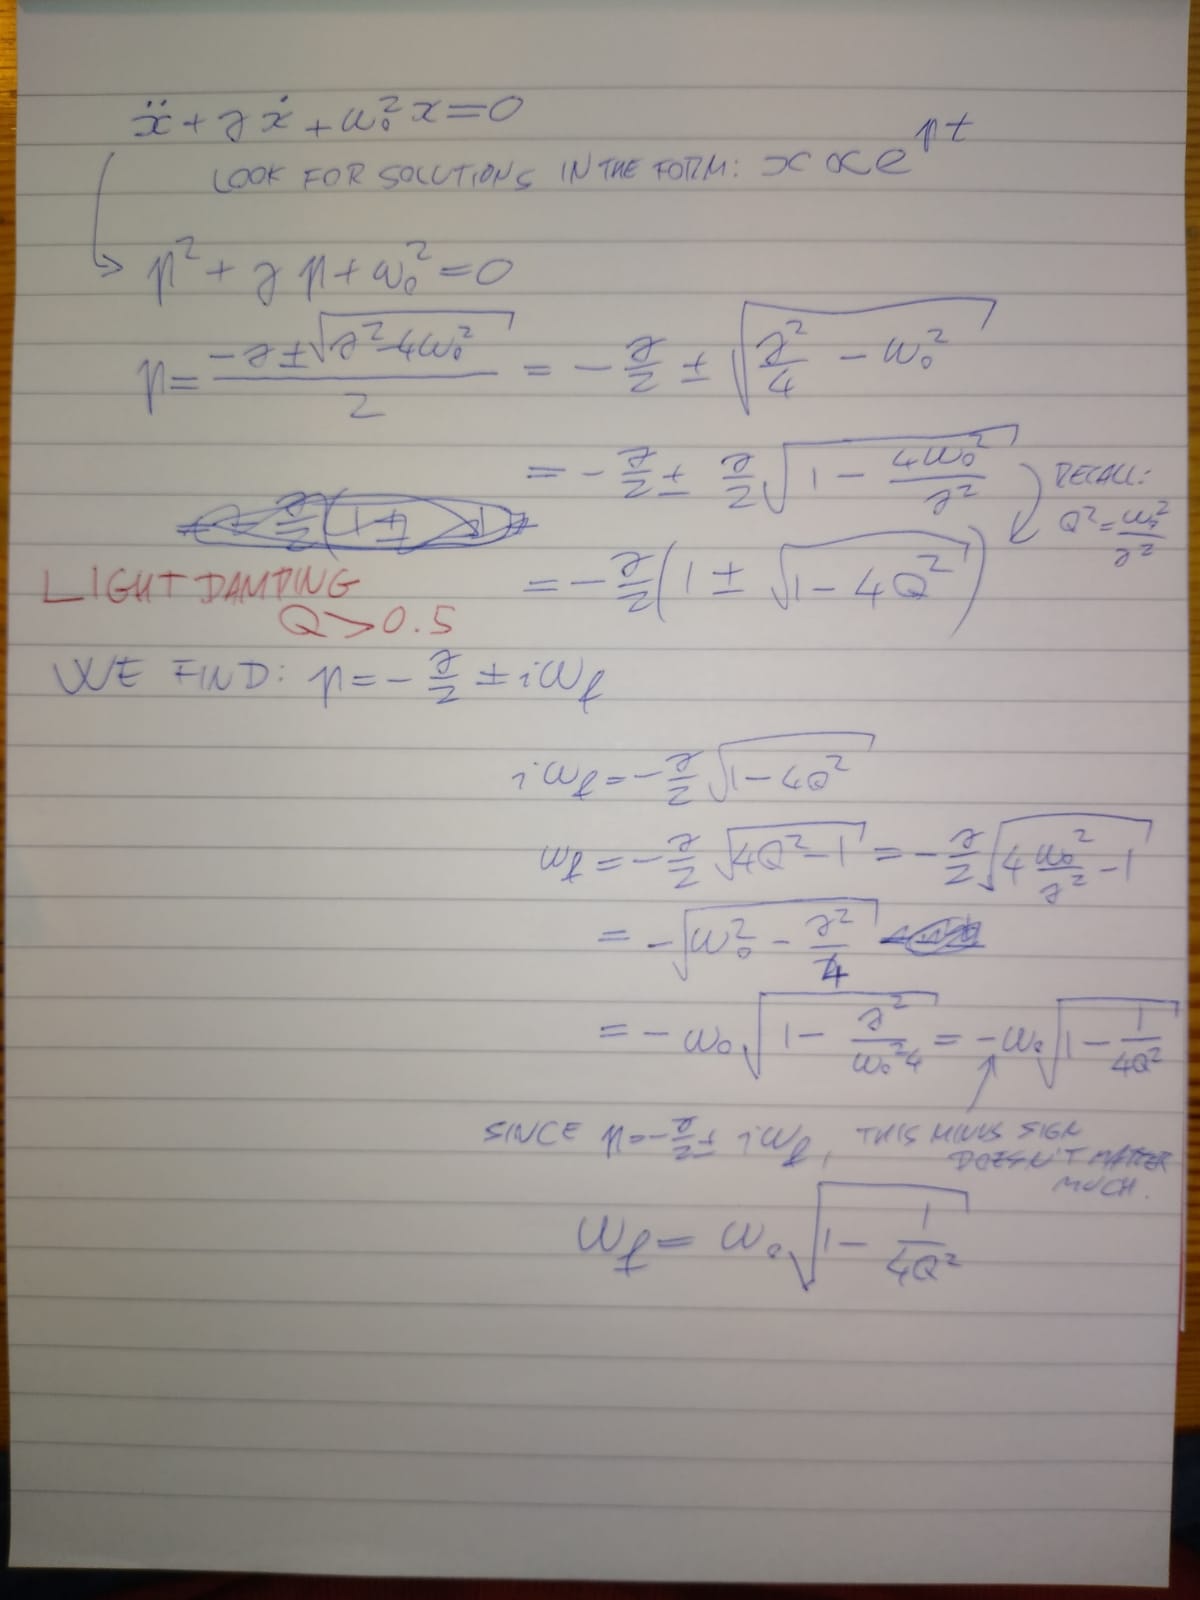 ẍ + γẋ + ω₀²x = 0
LOOK FOR SOLUTIONS IN THE FORM: x ∝ e^{pt}
p² + γp + ω₀² = 0
p = (-γ ± √(γ² - 4ω₀²)) / 2 = -γ/2 ± √(γ²/4 - ω₀²)
= -γ/2 ± γ/2 √(1 - 4ω₀²/γ²)
RECALL:
Q² = ω₀²/γ²
= -γ/2 (1 ± √(1 - 4Q²))
LIGHT DAMPING
Q > 0.5
WE FIND: p = -γ/2 ± iω_f
iω_f = -γ/2 √(1 - 4Q²)
ω_f = -γ/2 √(4Q² - 1) = -γ/2 √(4 ω₀²/γ² - 1)
= -√(ω₀² - γ²/4)
= -ω₀ √(1 - γ²/(ω₀² 4)) = -ω₀ √(1 - 1/(4Q²))
SINCE p = -γ/2 ± iω_f, THIS MINUS SIGN
DOESN'T MATTER
MUCH.
ω_f = ω₀ √(1 - 1/(4Q²))